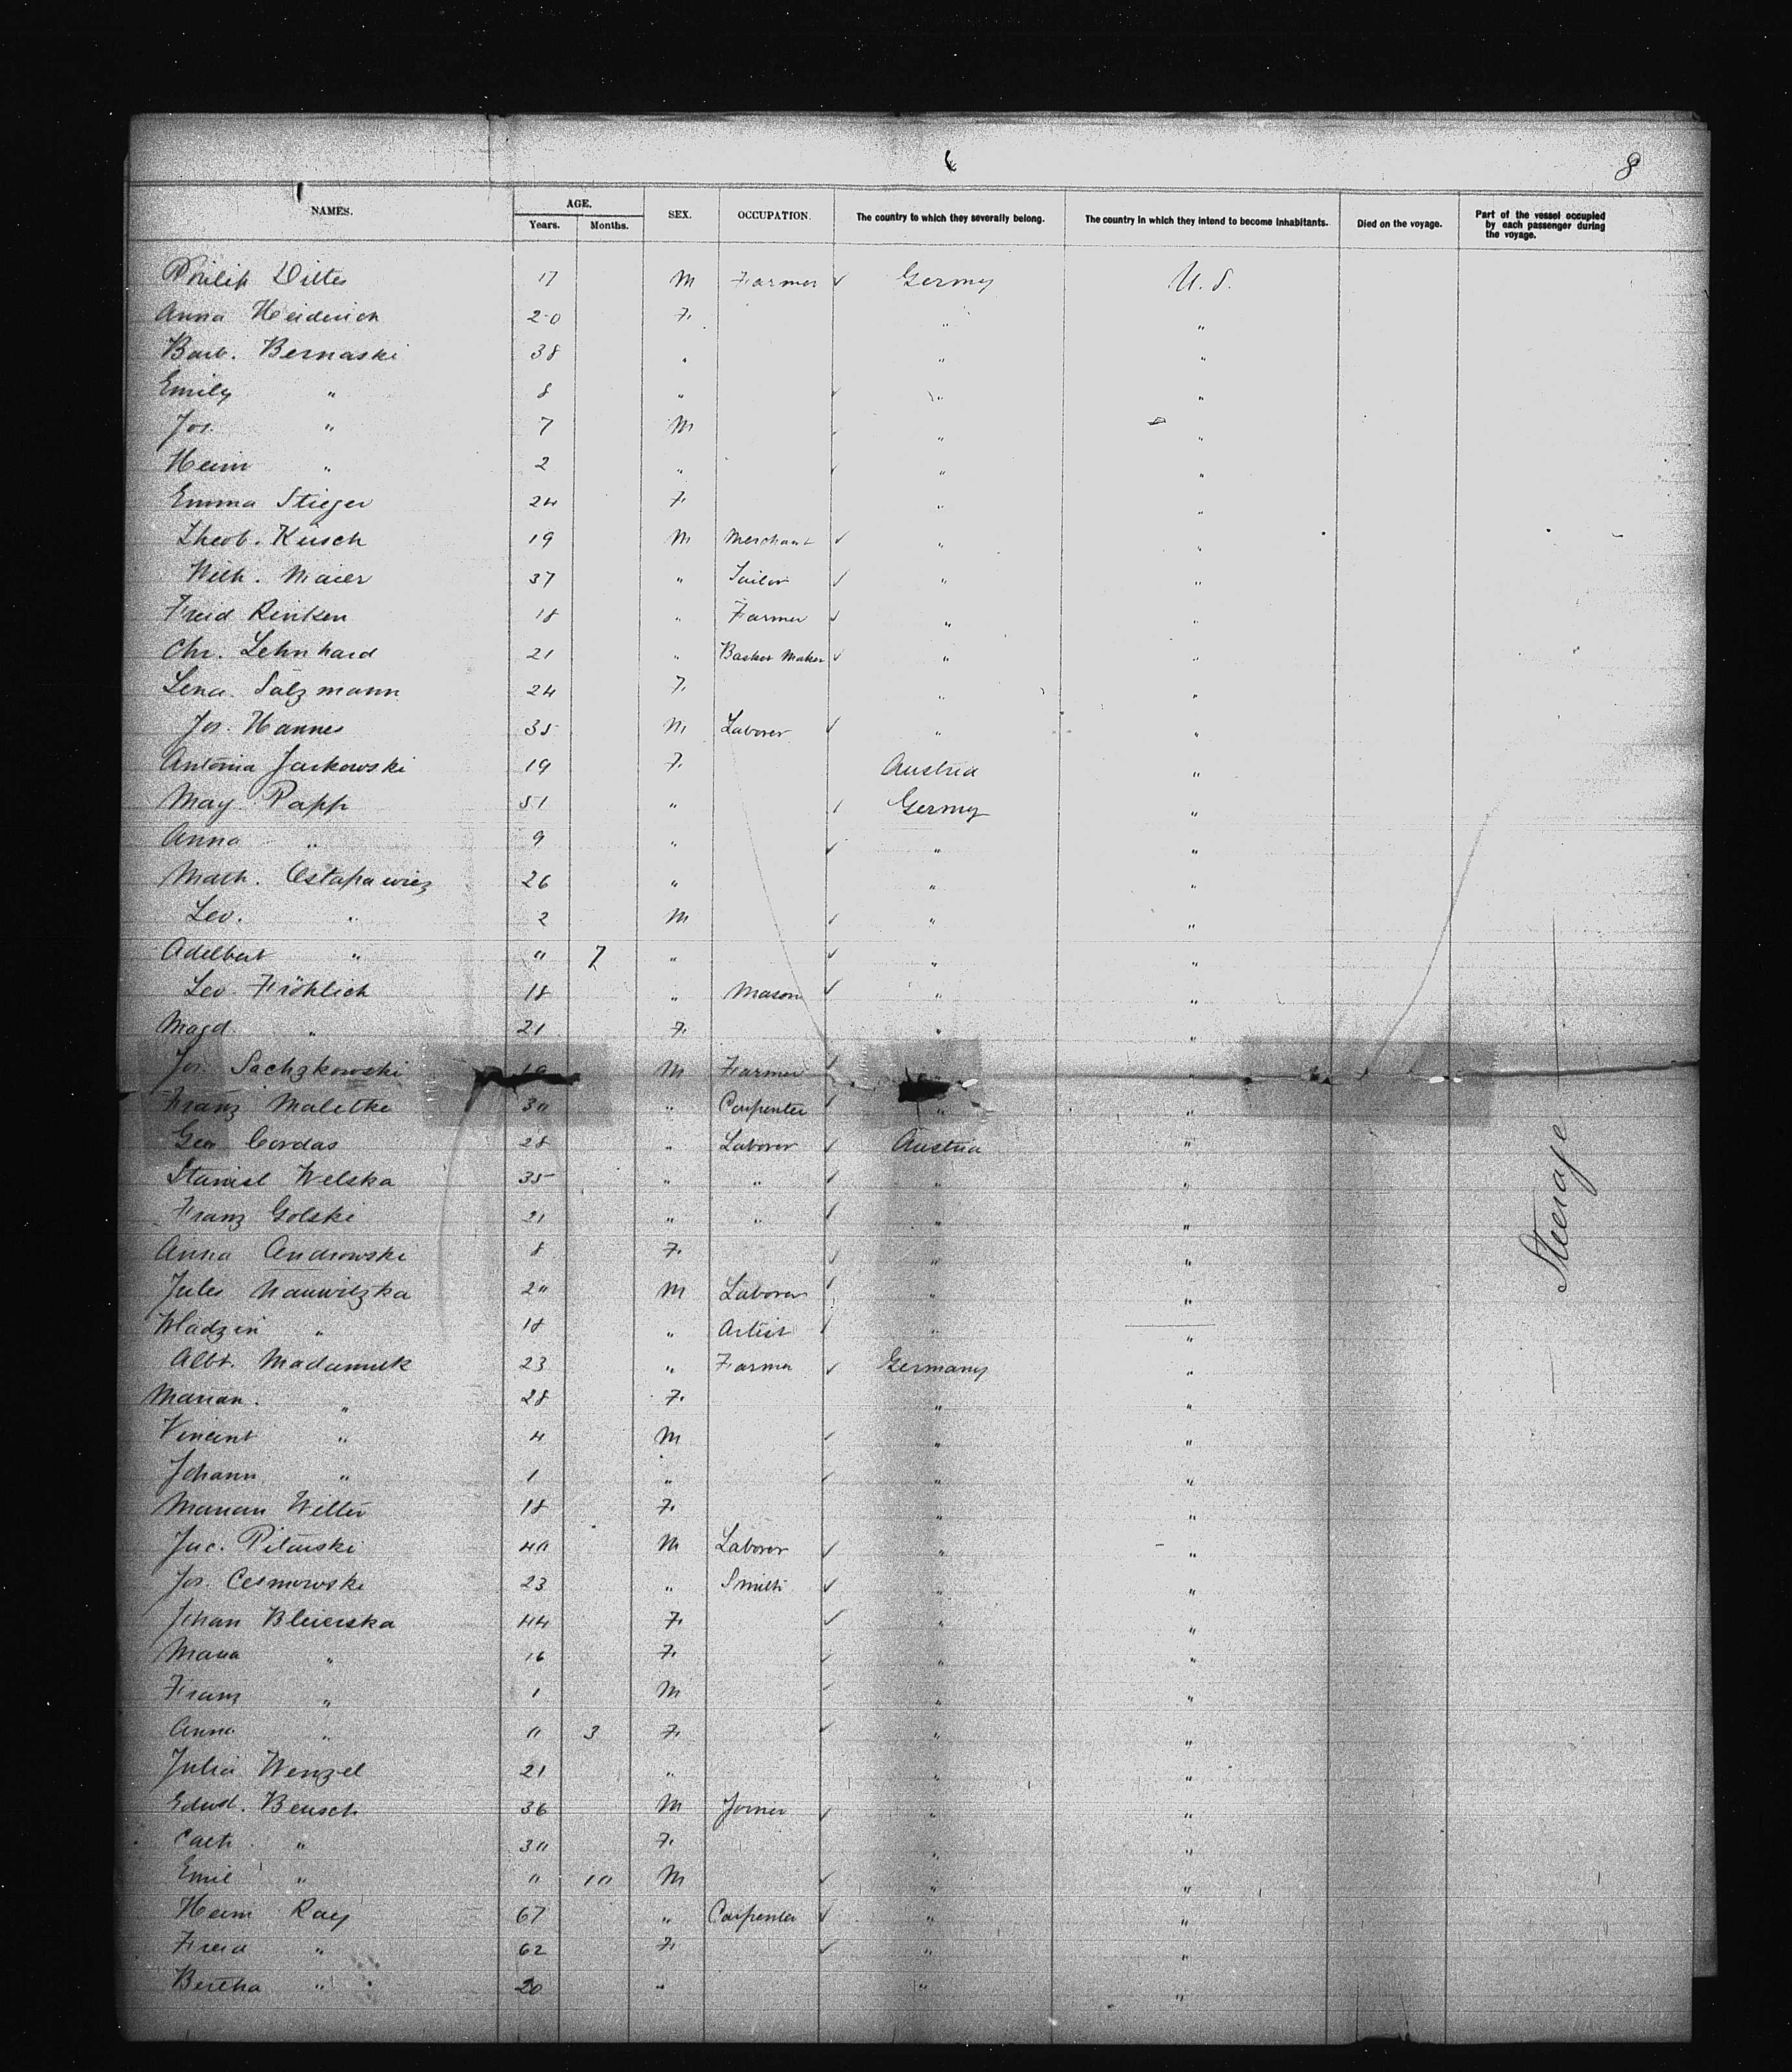 8
NAMES. AGE. Years. Months. SEX. OCCUPATION. The country to which they severally belong. The country in which they intend to become inhabitants. Died on the voyage. Part of the vessel occupied by each passenger during the voyage.
Philip Diltes 17 M Farmer ✓ Germy U.S.
Anna Heiderich 20 F. " "
Barb. Bernaski 38 " " "
Emily " 8 " ✓ " "
Jos. " 7 M " "
Heinr " 2 " ✓ " "
Emma Stieger 24 F. " "
Theob. Kusch 19 M Merchant ✓ " "
Wilh. Maier 37 " Tailor ✓ " "
Fried Rinken 18 " Farmer ✓ " "
Chr. Lehnhard 21 " Basket Maker ✓ " "
Lena Salzmann 24 F. " "
Jos. Hannes 35 M Laborer ✓ " "
Antonia Jarkowski 19 F. Austria "
May Papp 51 " ✓ Germy "
Anna " 9 " ✓ " "
Math. Ostapawiez 26 " " "
Leo. " 2 M ✓ " "
Adelbert " " 7 " ✓ " "
Leo Fröhlich 18 " Mason ✓ " "
Magd " 21 F. " "
Jos. Sachzkowski M Farmer ✓ "
Franz Maletke 30 " Carpenter ✓ " "
Geo Cordas 28 " Laborer ✓ Austria "
Stanisl Welska 35 " " ✓ " "
Franz Golski 21 " " ✓ " "
Anna Androwski 8 F. ✓ " "
Jules Nauwitzka 20 M Laborer ✓ " "
Wladzin " 18 " Artist ✓ " "
Albt. Madamuk 23 " Farmer ✓ Germany "
Marian. " 28 F. " "
Vincent " 4 M ✓ " "
Johann " 1 " ✓ " "
Marian Willer 18 F. " "
Jac. Pitarski 40 M Laborer ✓ " "
Jos. Cesmowski 23 " Smith ✓ " "
Johan Bleierska 44 F. ✓ " "
Maria " 16 F. ✓ " "
Franz " 1 M ✓ " "
Anna " " 3 F. ✓ " "
Julia Wenzel 21 " " "
Edwd. Beusch 36 M Joiner ✓ " "
Cath. " 30 F. " "
Emil " " 10 M ✓ " "
Heinr Ray 67 " Carpenter ✓ " "
Freid " 62 F. ✓ " "
Bertha " 20 " " "
Steerage